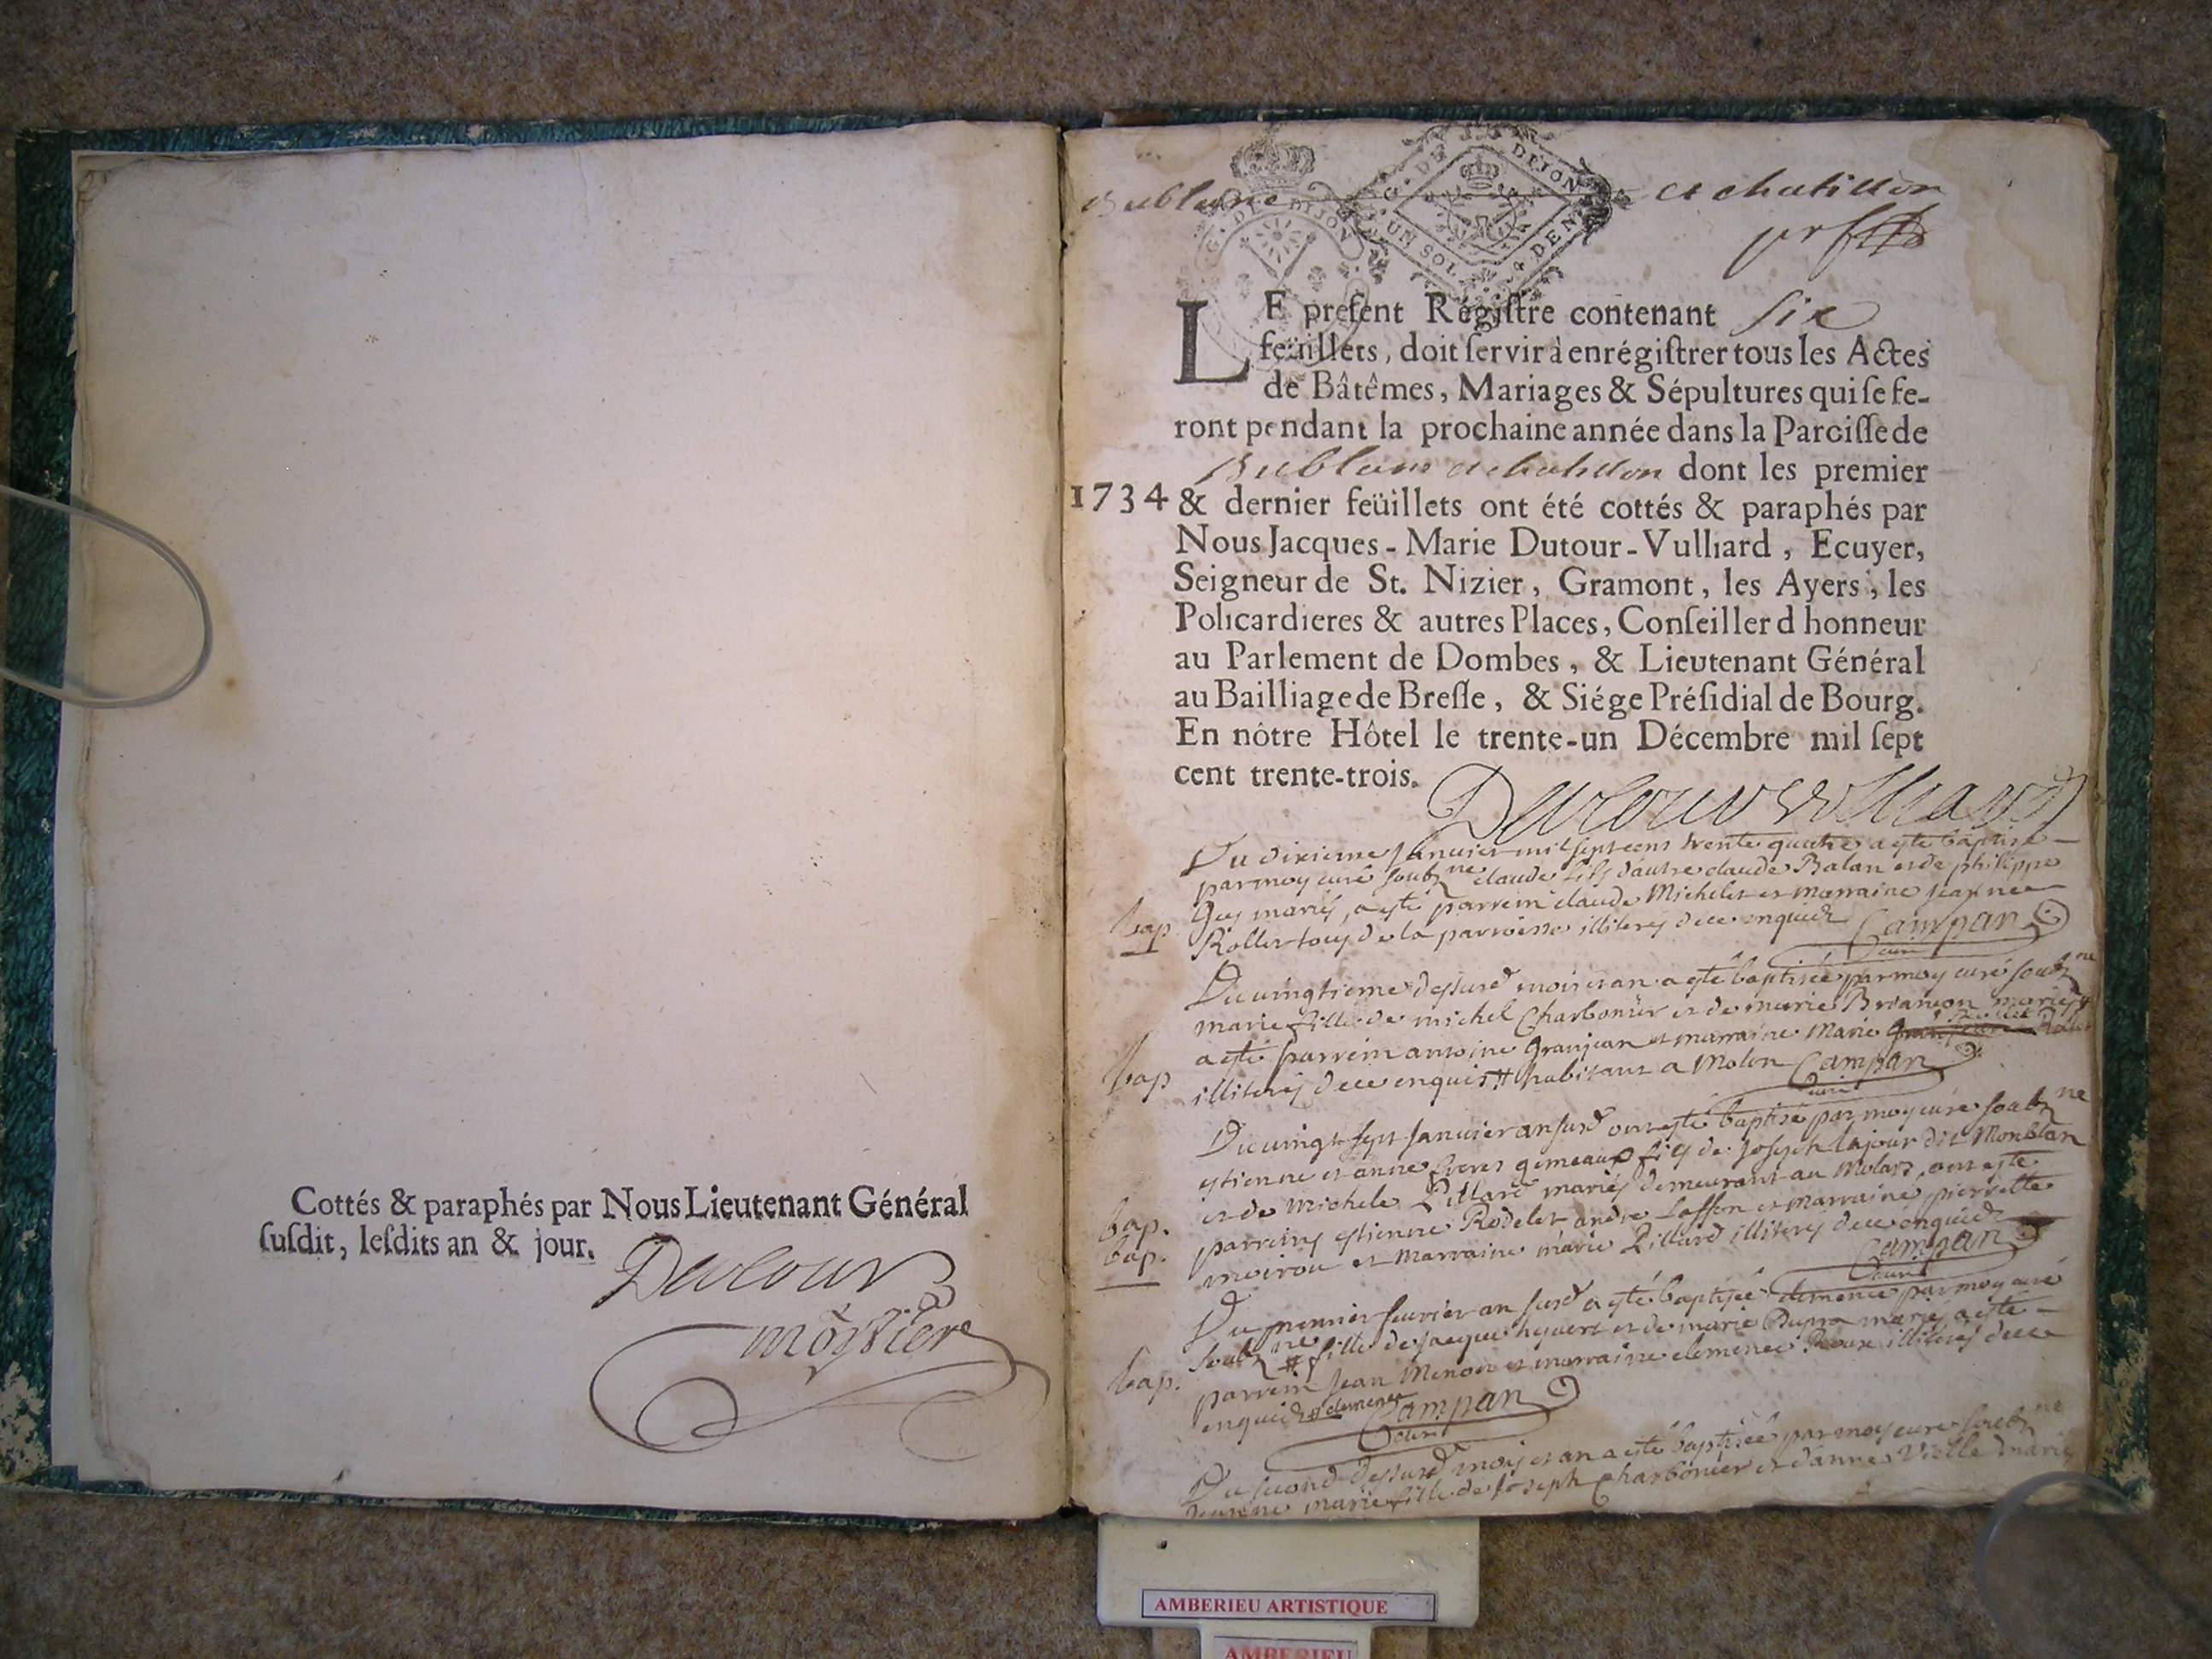 Cottés & paraphés par Nous Lieutenant Général
ſuſdit, leſdits an & jour.
Dutour
G. DE DIJON
G. DE DIJON
UN SOL 4 DEN
Bublane et chatillon
LE preſent Régiſtre contenant Six
feüillets, doit ſervir à enrégiſtrer tous les Actes
de Bâtêmes, Mariages & Sépultures qui ſe fe-
ront pendant la prochaine année dans la Paroiſſe de
Bublane et chatillon dont les premier
1734 & dernier feüillets ont été cottés & paraphés par
Nous Jacques-Marie Dutour-Vulliard, Ecuyer,
Seigneur de St. Nizier, Gramont, les Ayers, les
Policardieres & autres Places, Conſeiller d honneur
au Parlement de Dombes, & Lieutenant Général
au Bailliage de Breſſe, & Siége Préſidial de Bourg.
En nôtre Hôtel le trente-un Décembre mil ſept
cent trente-trois.
Dutour vulliard
Du dixieme Janvier mil sept cens trente quatre a esté baptisé
par moy curé soubne claude fils d'autre claude Balan et de philippe
Guy mariés, a esté parrein claude Michelet et marraine jeanne
bap
Rollet tous de la parroisse illiterés de ce enquis Campan
curé
Du vingtieme dessusd mois et an a esté baptisée par moy curé soubne
marie fille de michel Charbonier et de marie Briançon mariés #
a esté parrein antoine Granjean et marraine Marie
bap
illiterés de ce enquis # habitant a Molon Campan
curé
Du vingt sept Janvier an susd ont esté baptisé par moy curé soubne
estienne et anne freres gemeaux fils de Joseph Lajour dit Monblan
et de Michele Pillard mariés demeurant au Molard, ont esté
bap.
parreins estienne Rodelet andré Laffon et marraine pierrette
bap.
moirou et marraine marie Pillard illiterés de ce enquis
Campan
curé
Du premier fevrier an susd a esté baptisée clemence par moy curé
soubne # fille de jacque et de marie Dupra mariés a esté
bap.
parrein Jean Menon et marraine clemence Roux illiterés de ce
enquis # clemence Campan
curé
Du second dessusd mois et an a esté baptisée par moy curé soubne
jeanne marie fille de Joseph Charbonier et d'anne Vielle mariés
AMBERIEU ARTISTIQUE
AMBERIEU